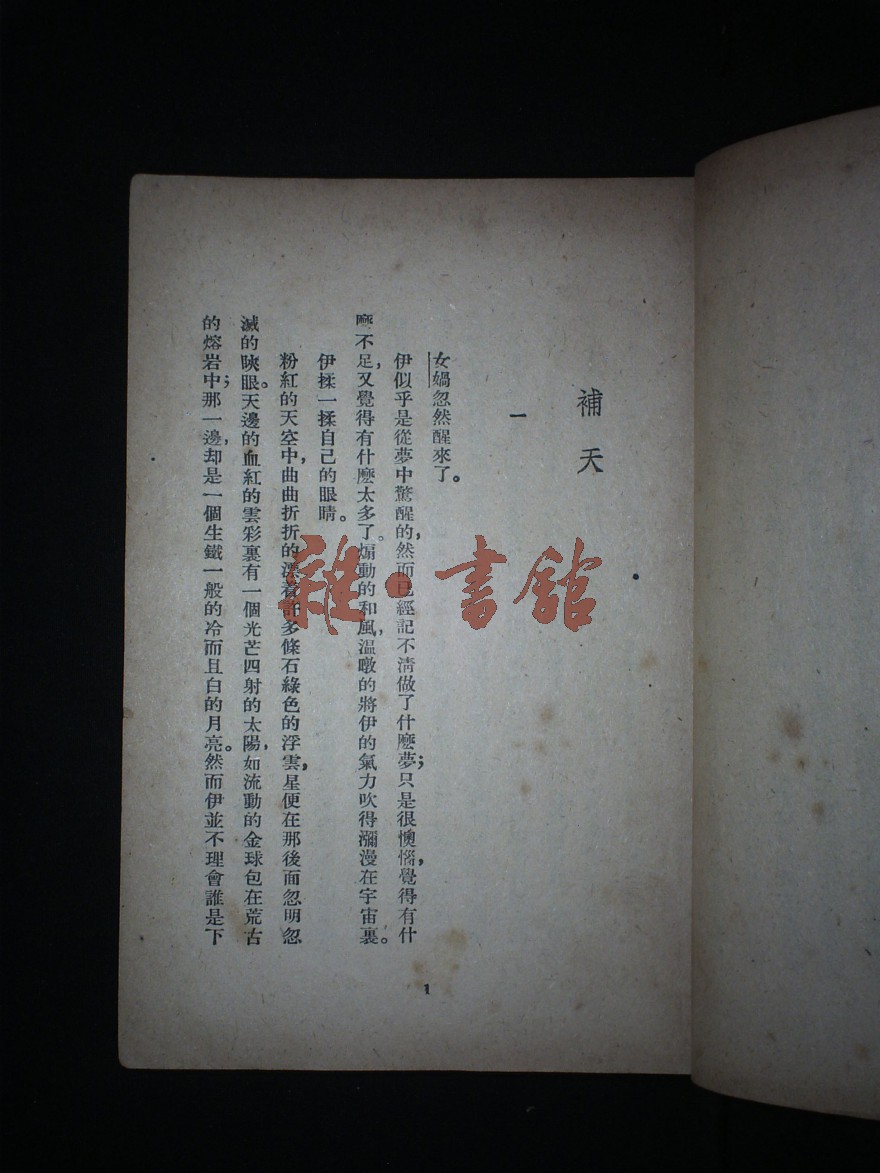 補天
一
女媧忽然醒來了。
伊似乎是從夢中驚醒的，然而已經記不清做了什麼夢；只是很懊惱，覺得有什
麼不足，又覺得有什麼太多了。煽動的和風，溫暾的將伊的氣力吹得瀰漫在宇宙裏。
伊揉一揉自己的眼睛。
粉紅的天空中，曲曲折折的漂着許多條石綠色的浮雲，星便在那後面忽明忽
滅的䀹眼。天邊的血紅的雲彩裏有一個光芒四射的太陽，如流動的金球包在荒古
的熔岩中；那一邊，却是一個生鐵一般的冷而且白的月亮。然而伊並不理會誰是下
1
雜·書館